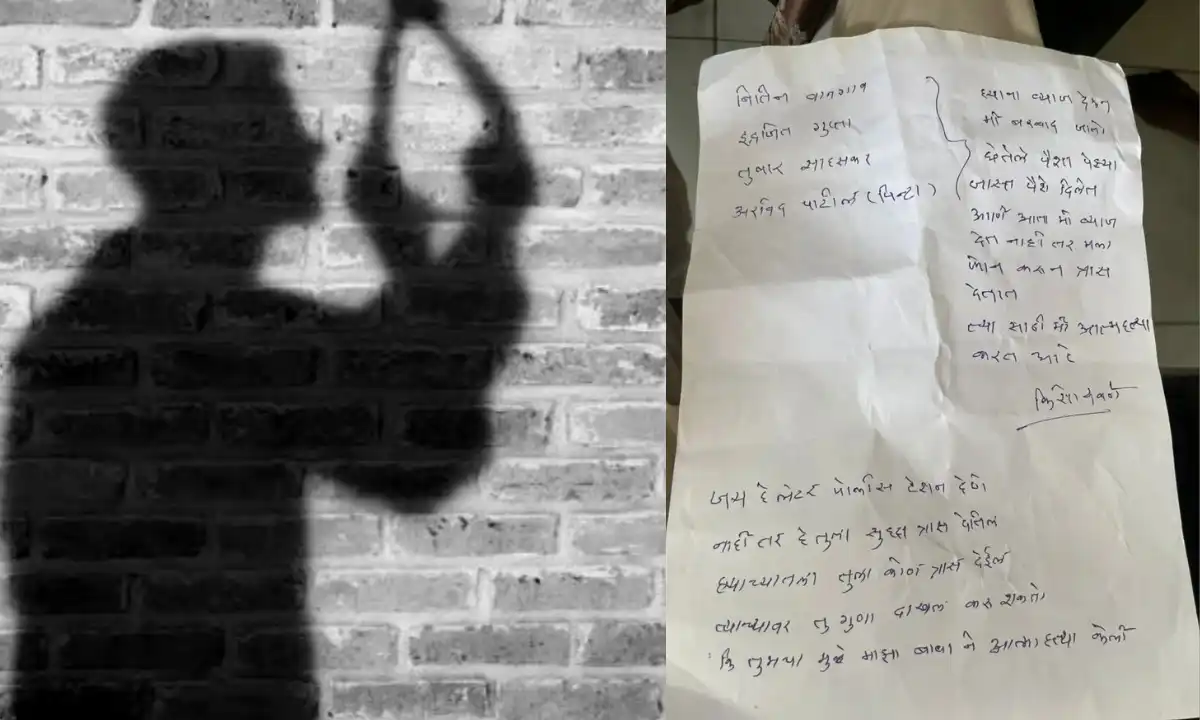 नितिन वानगाव
इंद्रजित गुप्ता
तुषार आडसकर
अरविंद पाटील (पिन्टा)
ह्याना व्याज देऊन
मी बरबाद झालो
घेतेले पैशा पेक्षा
जास्त पैशे दिलेत
आणि आता मी व्याज
देत नाही तर मला
फोन करून त्रास
देतात
त्या साठी मी आत्महत्या
करत आहे
जय हे लेटर पोलीस टेशन देणे
नाही तर हे तुला सुध्दा त्रास देतिल
ह्याच्यातला तुला कोण त्रास देईल
त्याच्यावर तु गुणा दाखल करु शकतो
कि तुमच्या मुळे माझा बाबा ने आत्माहत्या केली